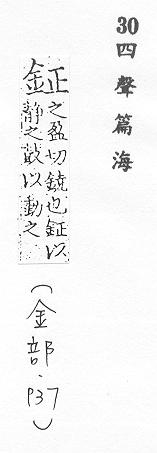 30四聲篇海
鉦之盈切鐃也鉦以
靜之鼓以動之
(金部.P37)